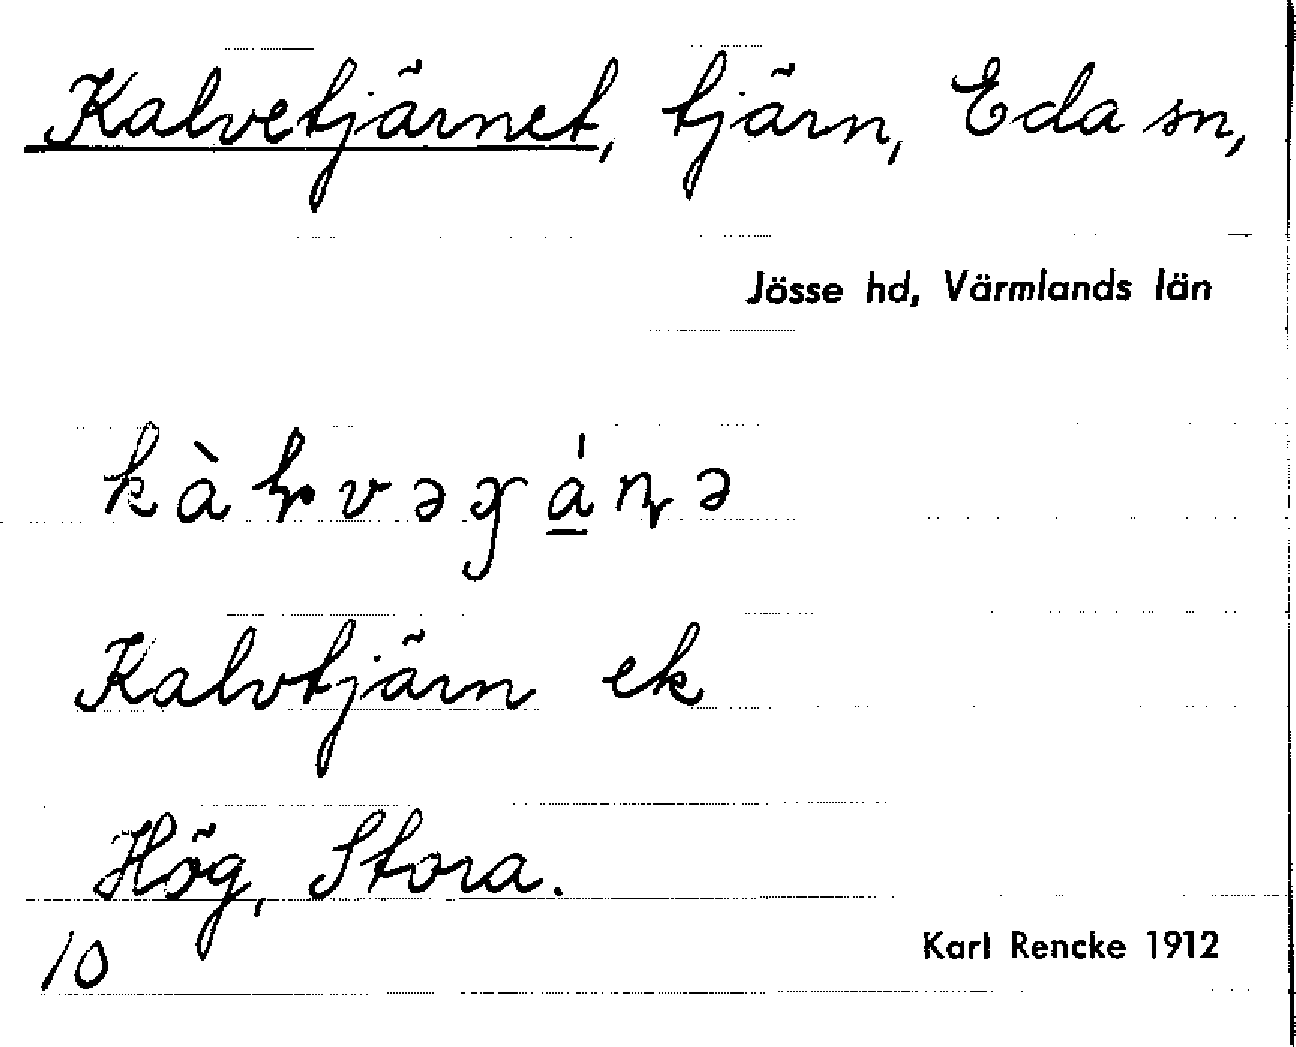 Kalvetjärnet, tjärn, Eda sn,
Jösse hd, Värmlands län
Kalvtjärn ek
Hög, Stora.
10
Karl Rencke 1912